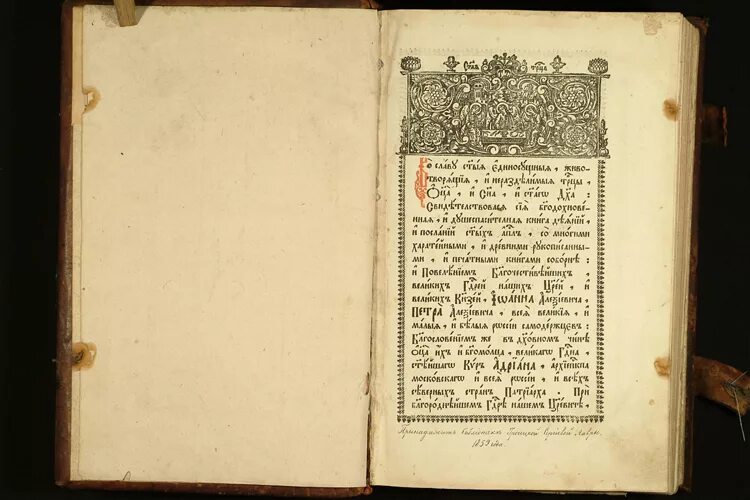 Ст҃аѧ трⷪ҇ца
Во славу ст҃ыѧ единосущныѧ, живо-
творѧщіѧ, и нераздѣлимыѧ трⷪ҇цы,
Ѻц҃а, и Сн҃а, и ст҃агѡ Дх҃а:
Свидѣтелствоваſѧ сіѧ бг҃одохнове-
ннаѧ, и душеспасителнаѧ книга дѣѧнїй,
и посланїй ст҃ыхъ апⷭ҇лъ, со многими
харатейными, и древними рукописанны-
ми, и печатными книгами соборнѣ:
и Повелѣнїемъ Благочестивѣйшихъ
великихъ Гдⷭ҇рей нашихъ Цр҃ей, и
великихъ Кнѧзей, Іѡанна Алеѯїевича,
Петра Алеѯїевича, всеѧ великїѧ, и
малыѧ, и бѣлыѧ рѡссїи самодержцевъ:
Благословенїемъ же въ дх҃овномъ чинѣ
ѻц҃а ихъ и бг҃омолца, великагѡ Гдⷭ҇на
ст҃ѣйшагѡ Кѵръ Адрїана, архїепⷭ҇кпа
московскагѡ и всеѧ рѡссїи, и всѣхъ
сѣверныхъ странъ Патрїарха. При
благороднѣйшемъ Гдⷭ҇рѣ нашемъ Цр҃евичѣ,
Принадлежитъ библіотекѣ Троицкой Сергіевой Лавры.
1859 года.